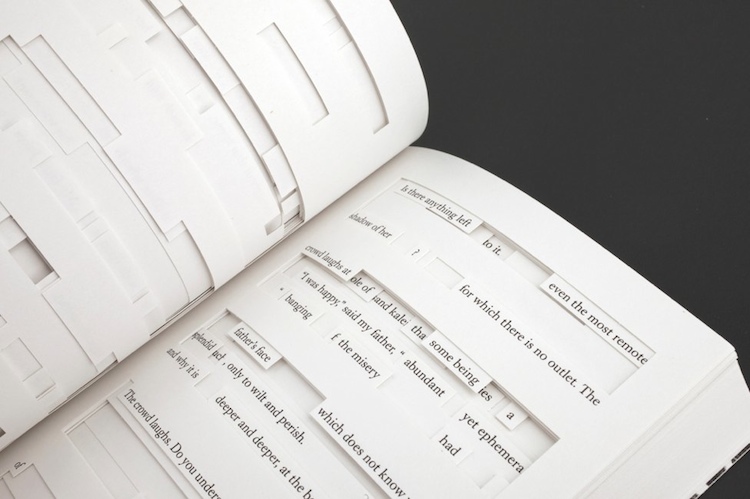 is there anything left
to it.
even the most remote
shadow of her
?
for which there is no outlet. The
crowd laughs at
ole of
and kale
tha
some being
es
a
"I was happy," said my father, "
abundant
yet ephemera
" banging
f the misery
had
splendid
father's face
which does not know
and why it is
, only to wilt and perish.
deeper and deeper, at the b
The crowd laughs. Do you unders